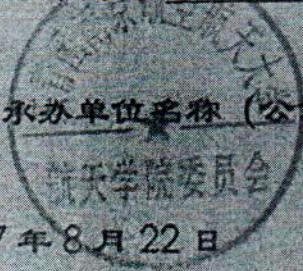 航天大
承办单位名称（公
航天学院委员会
7年8月22日